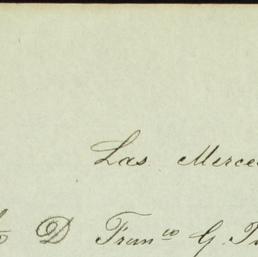 Las Merce
D Fran^co G.